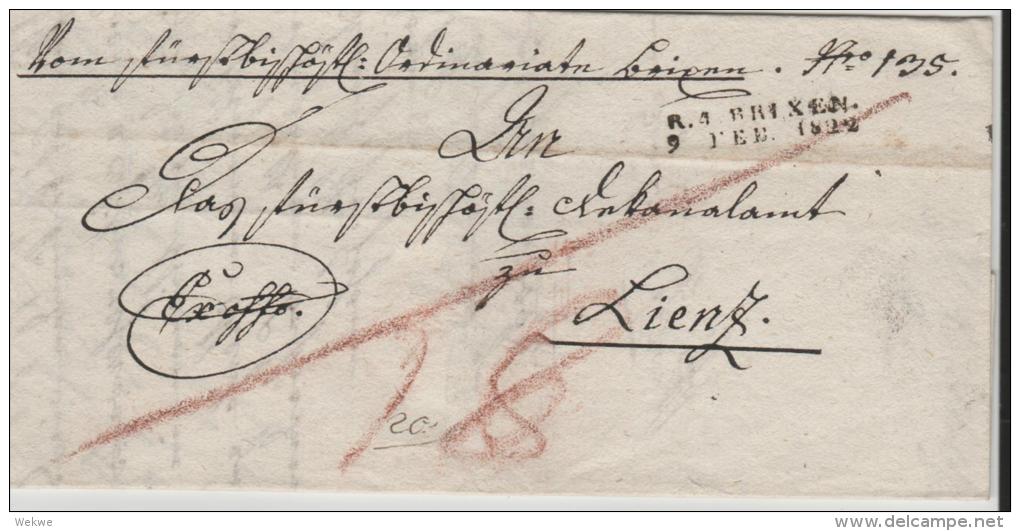 Vom fürstbischöfl: Ordinariate Brixen. Nro 135.
R. 4 BRIXEN.
9 FEB. 1822
An
Das fürstbischöfl: Dekanalamt
zu
Lienz.
20
Wekwe
delcampe.net